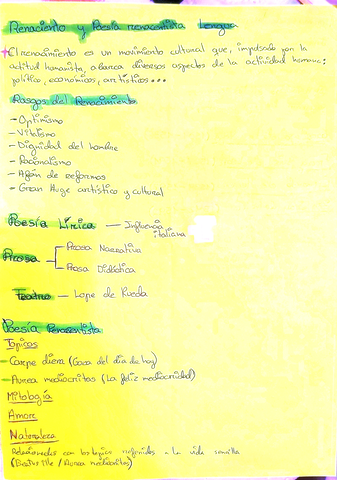 Renaciento y Poesía renacentista Lengua
El renacimiento es un movimiento cultural que, impulsado por la
actitud humanista, abarca diversos aspectos de la actividad humana:
político, económicos, artísticos...
Rasgos del Renacimiento
- Optimismo
- Vitalismo
- Dignidad del hombre
- Racionalismo
- Afán de reformas
- Gran Auge artístico y cultural
Poesía Lírica — Influencia
italiana
Prosa
Prosa Narrativa
Prosa Didáctica
Teatro — Lope de Rueda
Poesía Renacentista
Tópicos
- Carpe diem (Goza del día de hoy)
- Aurea mediocritas (La feliz mediocridad)
Mitología
Amore
Naturaleza
Relacionados con los tópicos referidos a la vida sencilla
(Beatus Ille / Aurea mediocritas)